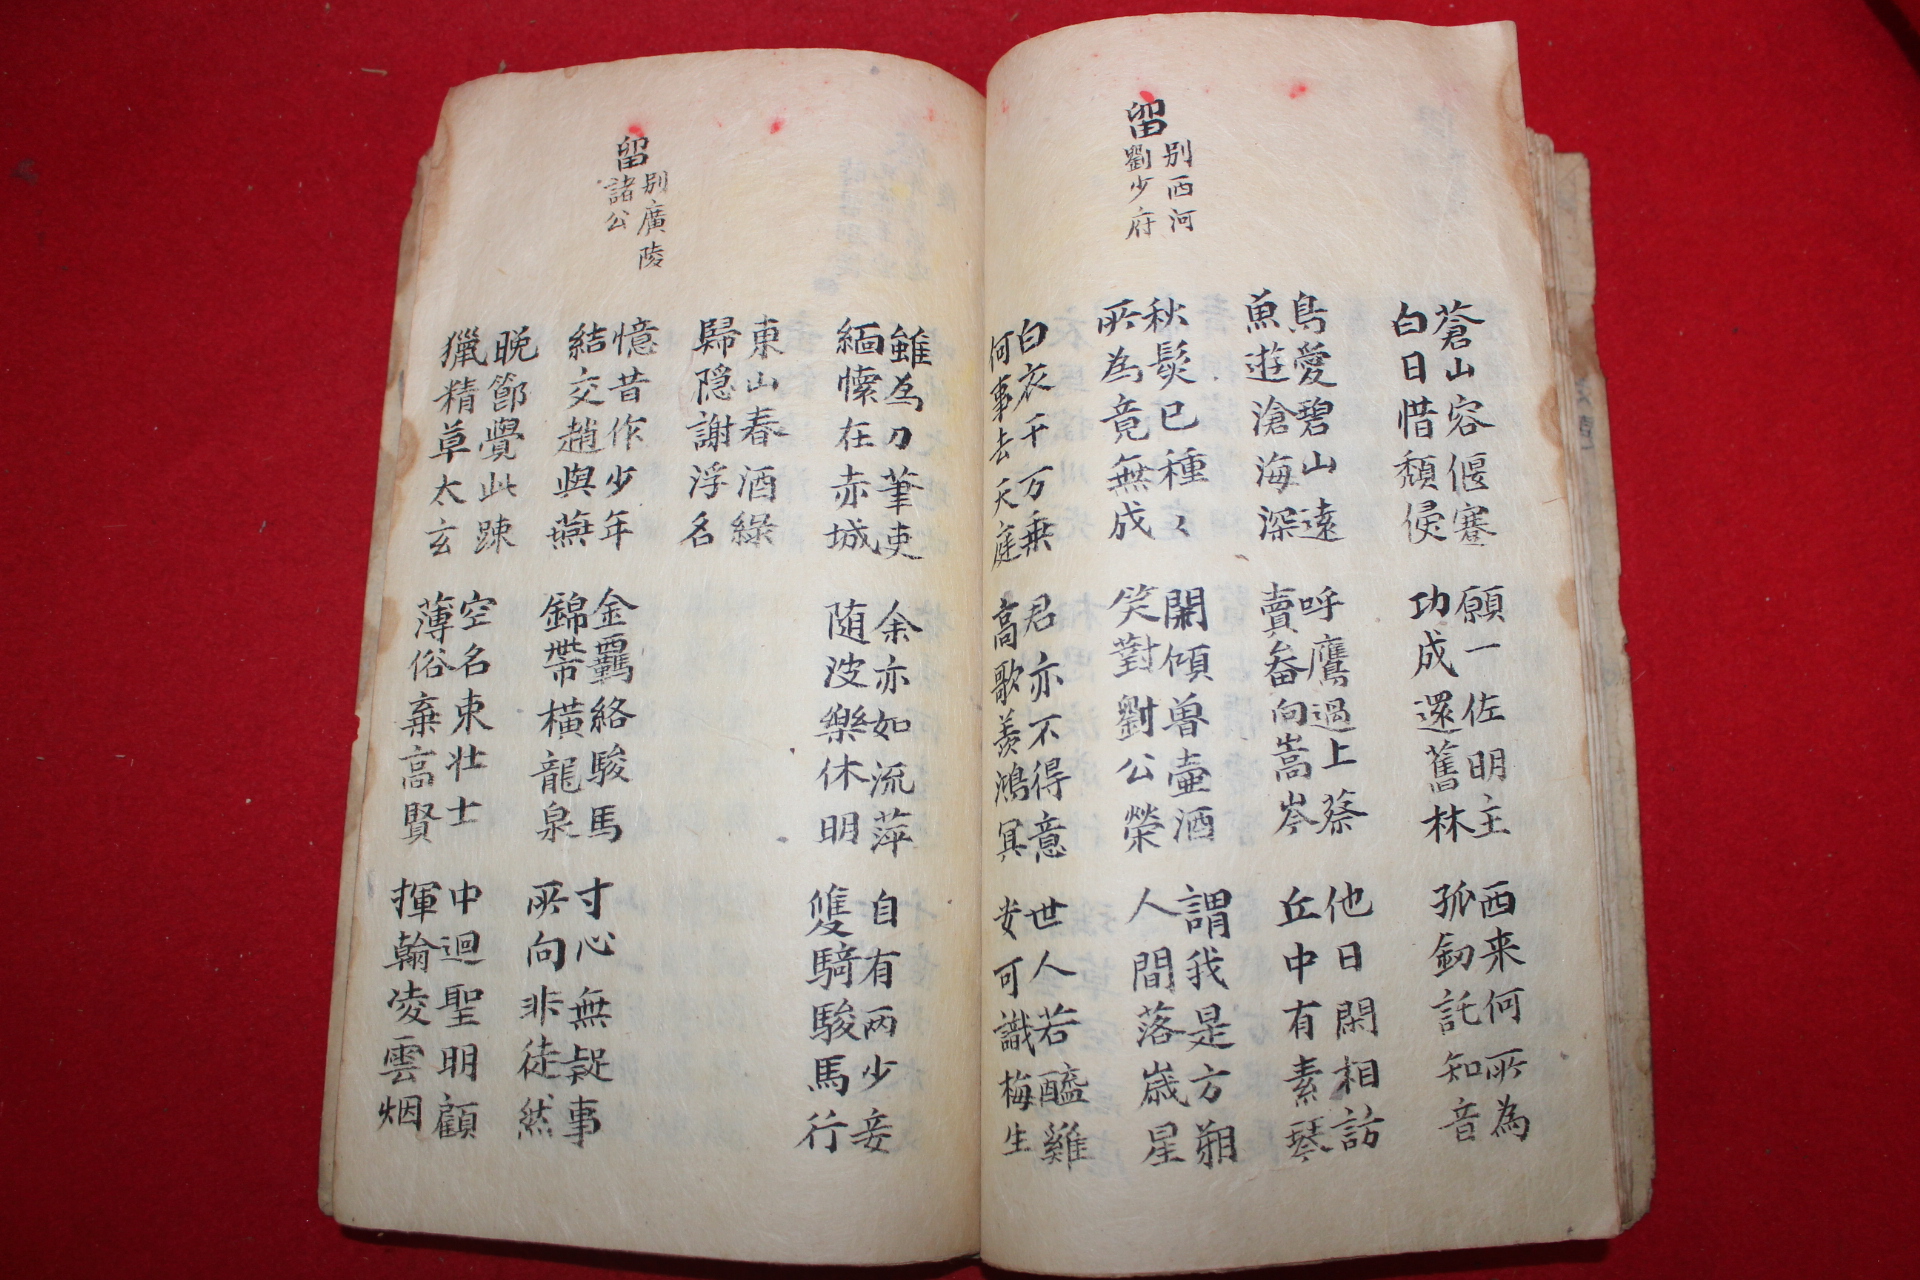 蒼山容偃蹇
白日惜頹侵
願一佐明主
功成還舊林
西来何所為
孤釰託知音
鳥愛碧山遠
魚遊滄海深
呼鷹過上蔡
賣畚向嵩岑
他日閑相訪
丘中有素琴
留別西河
劉少府
秋髮已種々
所為竟無成
閑傾魯壺酒
笑對劉公榮
謂我是方朔
人間落歲星
白衣千万乗
何事去天庭
君亦不得意
高歌羨鴻冥
世人若醯雞
安可識梅生
雖為刀筆吏
緬懐在赤城
余亦如流萍
随波樂休明
自有两少妾
雙騎駿馬行
東山春酒綠
歸隠謝浮名
留別廣陵
諸公
憶昔作少年
結交趙與燕
金羈絡駿馬
錦帶橫龍泉
寸心無疑事
所向非徒然
晚節覺此踈
獵精草太玄
空名束壯士
薄俗棄高賢
中迴聖明顧
揮翰凌雲烟